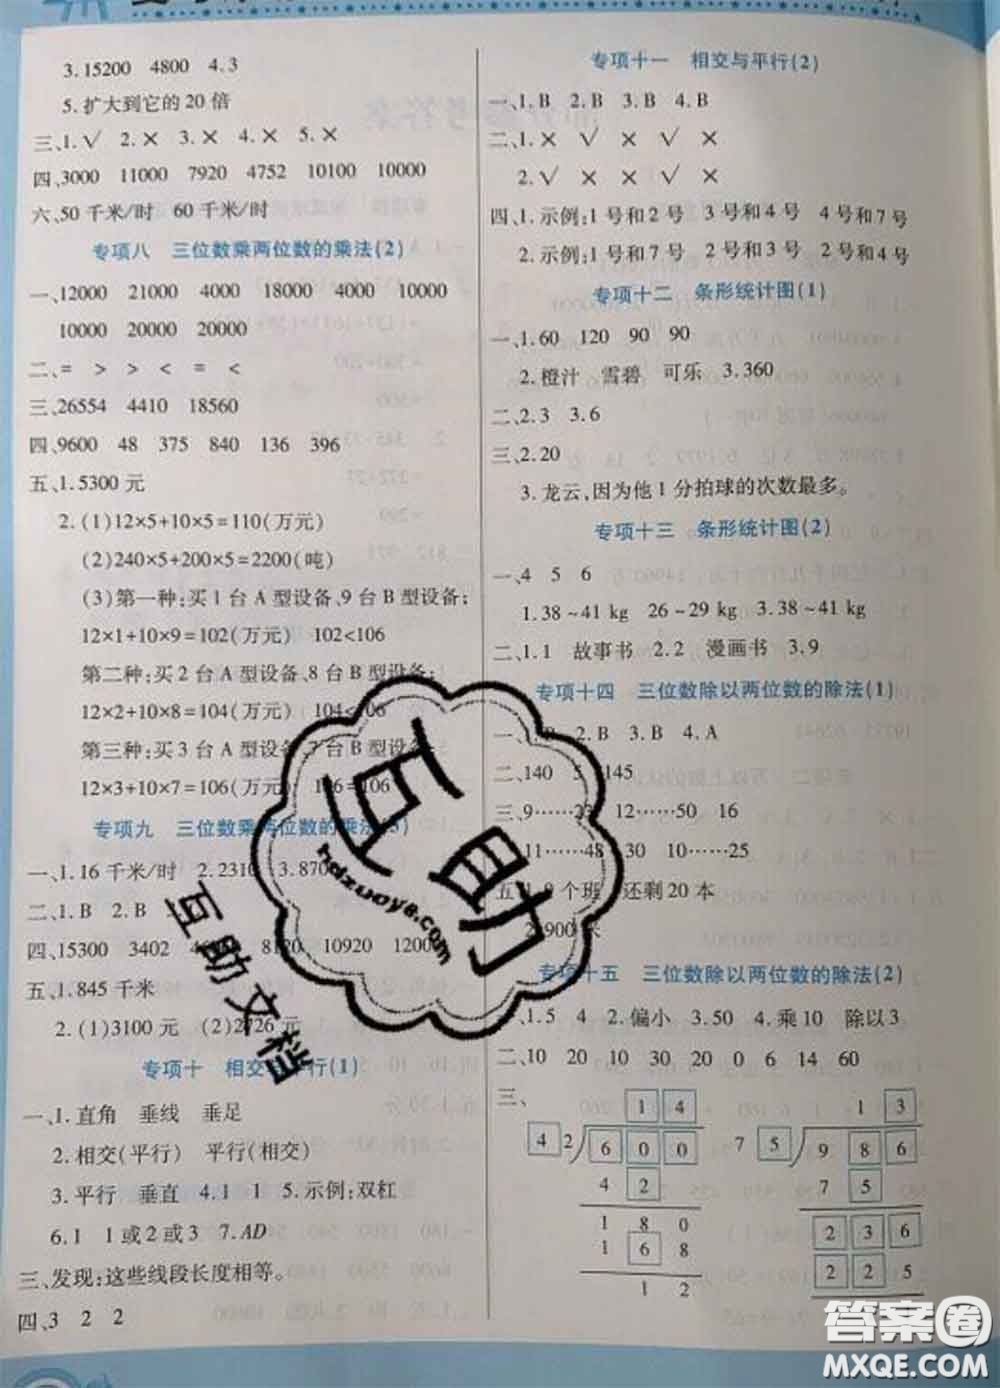 3.15200 4800 4.3
5.扩大到它的20倍
三、1.√ 2.× 3.× 4.× 5.×
四、3000 11000 7920 4752 10100 10000
六、50千米/时 60千米/时
专项八 三位数乘两位数的乘法(2)
一、12000 21000 4000 18000 4000 10000
10000 20000 20000
二、= > > < = <
三、26554 4410 18560
四、9600 48 375 840 136 396
五、1.5300元
2.(1)12×5+10×5=110(万元)
(2)240×5+200×5=2200(吨)
(3)第一种:买1台A型设备、9台B型设备;
12×1+10×9=102(万元) 102<106
第二种:买2台A型设备、8台B型设备;
12×2+10×8=104(万元) 104<106
第三种:买3台A型设备、7台B型设备;
12×3+10×7=106(万元) 106=106
专项九 三位数乘两位数的乘法(3)
一、1.16千米/时 2.2310 3.870
二、1.B 2.B
四、15300 3402 8120 10920 12000
五、1.845千米
2.(1)3100元 (2)2726元
专项十 相交与平行(1)
一、1.直角 垂线 垂足
2.相交(平行) 平行(相交)
3.平行 垂直 4.1 1 5.示例:双杠
6.1 1或2或3 7.AD
三、发现:这些线段长度相等。
四、3 2 2
专项十一 相交与平行(2)
一、1.B 2.B 3.B 4.B
二、1.× √ × ×
2.√ × √ ×
四、1.示例:1号和2号 3号和4号 4号和7号
2.示例:1号和7号 2号和3号 2号和4号
专项十二 条形统计图(1)
一、1.60 120 90 90
2.橙汁 雪碧 可乐 3.360
二、2.3 3.6
三、2.20
3.龙云,因为他1分拍球的次数最多。
专项十三 条形统计图(2)
一、4 5 6
1.38~41 kg 26~29 kg 3.38~41 kg
二、1.1 故事书 2.2 漫画书 3.9
专项十四 三位数除以两位数的除法(1)
一、1.B 2.B 3.B 4.A
二、140 5 145
三、9……23 12……50 16
11……48 30 10……25
五、1.9个班 还剩20本
2.900米
专项十五 三位数除以两位数的除法(2)
一、1.5 4 2.偏小 3.50 4.乘10 除以3
二、10 20 10 30 20 0 6 14 60
三、
1 4
4 2 6 0 0
4 2
1 8 0
1 6 8
1 2
1 3
7 5 9 8 6
7 5
2 3 6
2 2 5
1 1
互助
hdzuoye.com
互助文档
答案圈
MXQE.COM